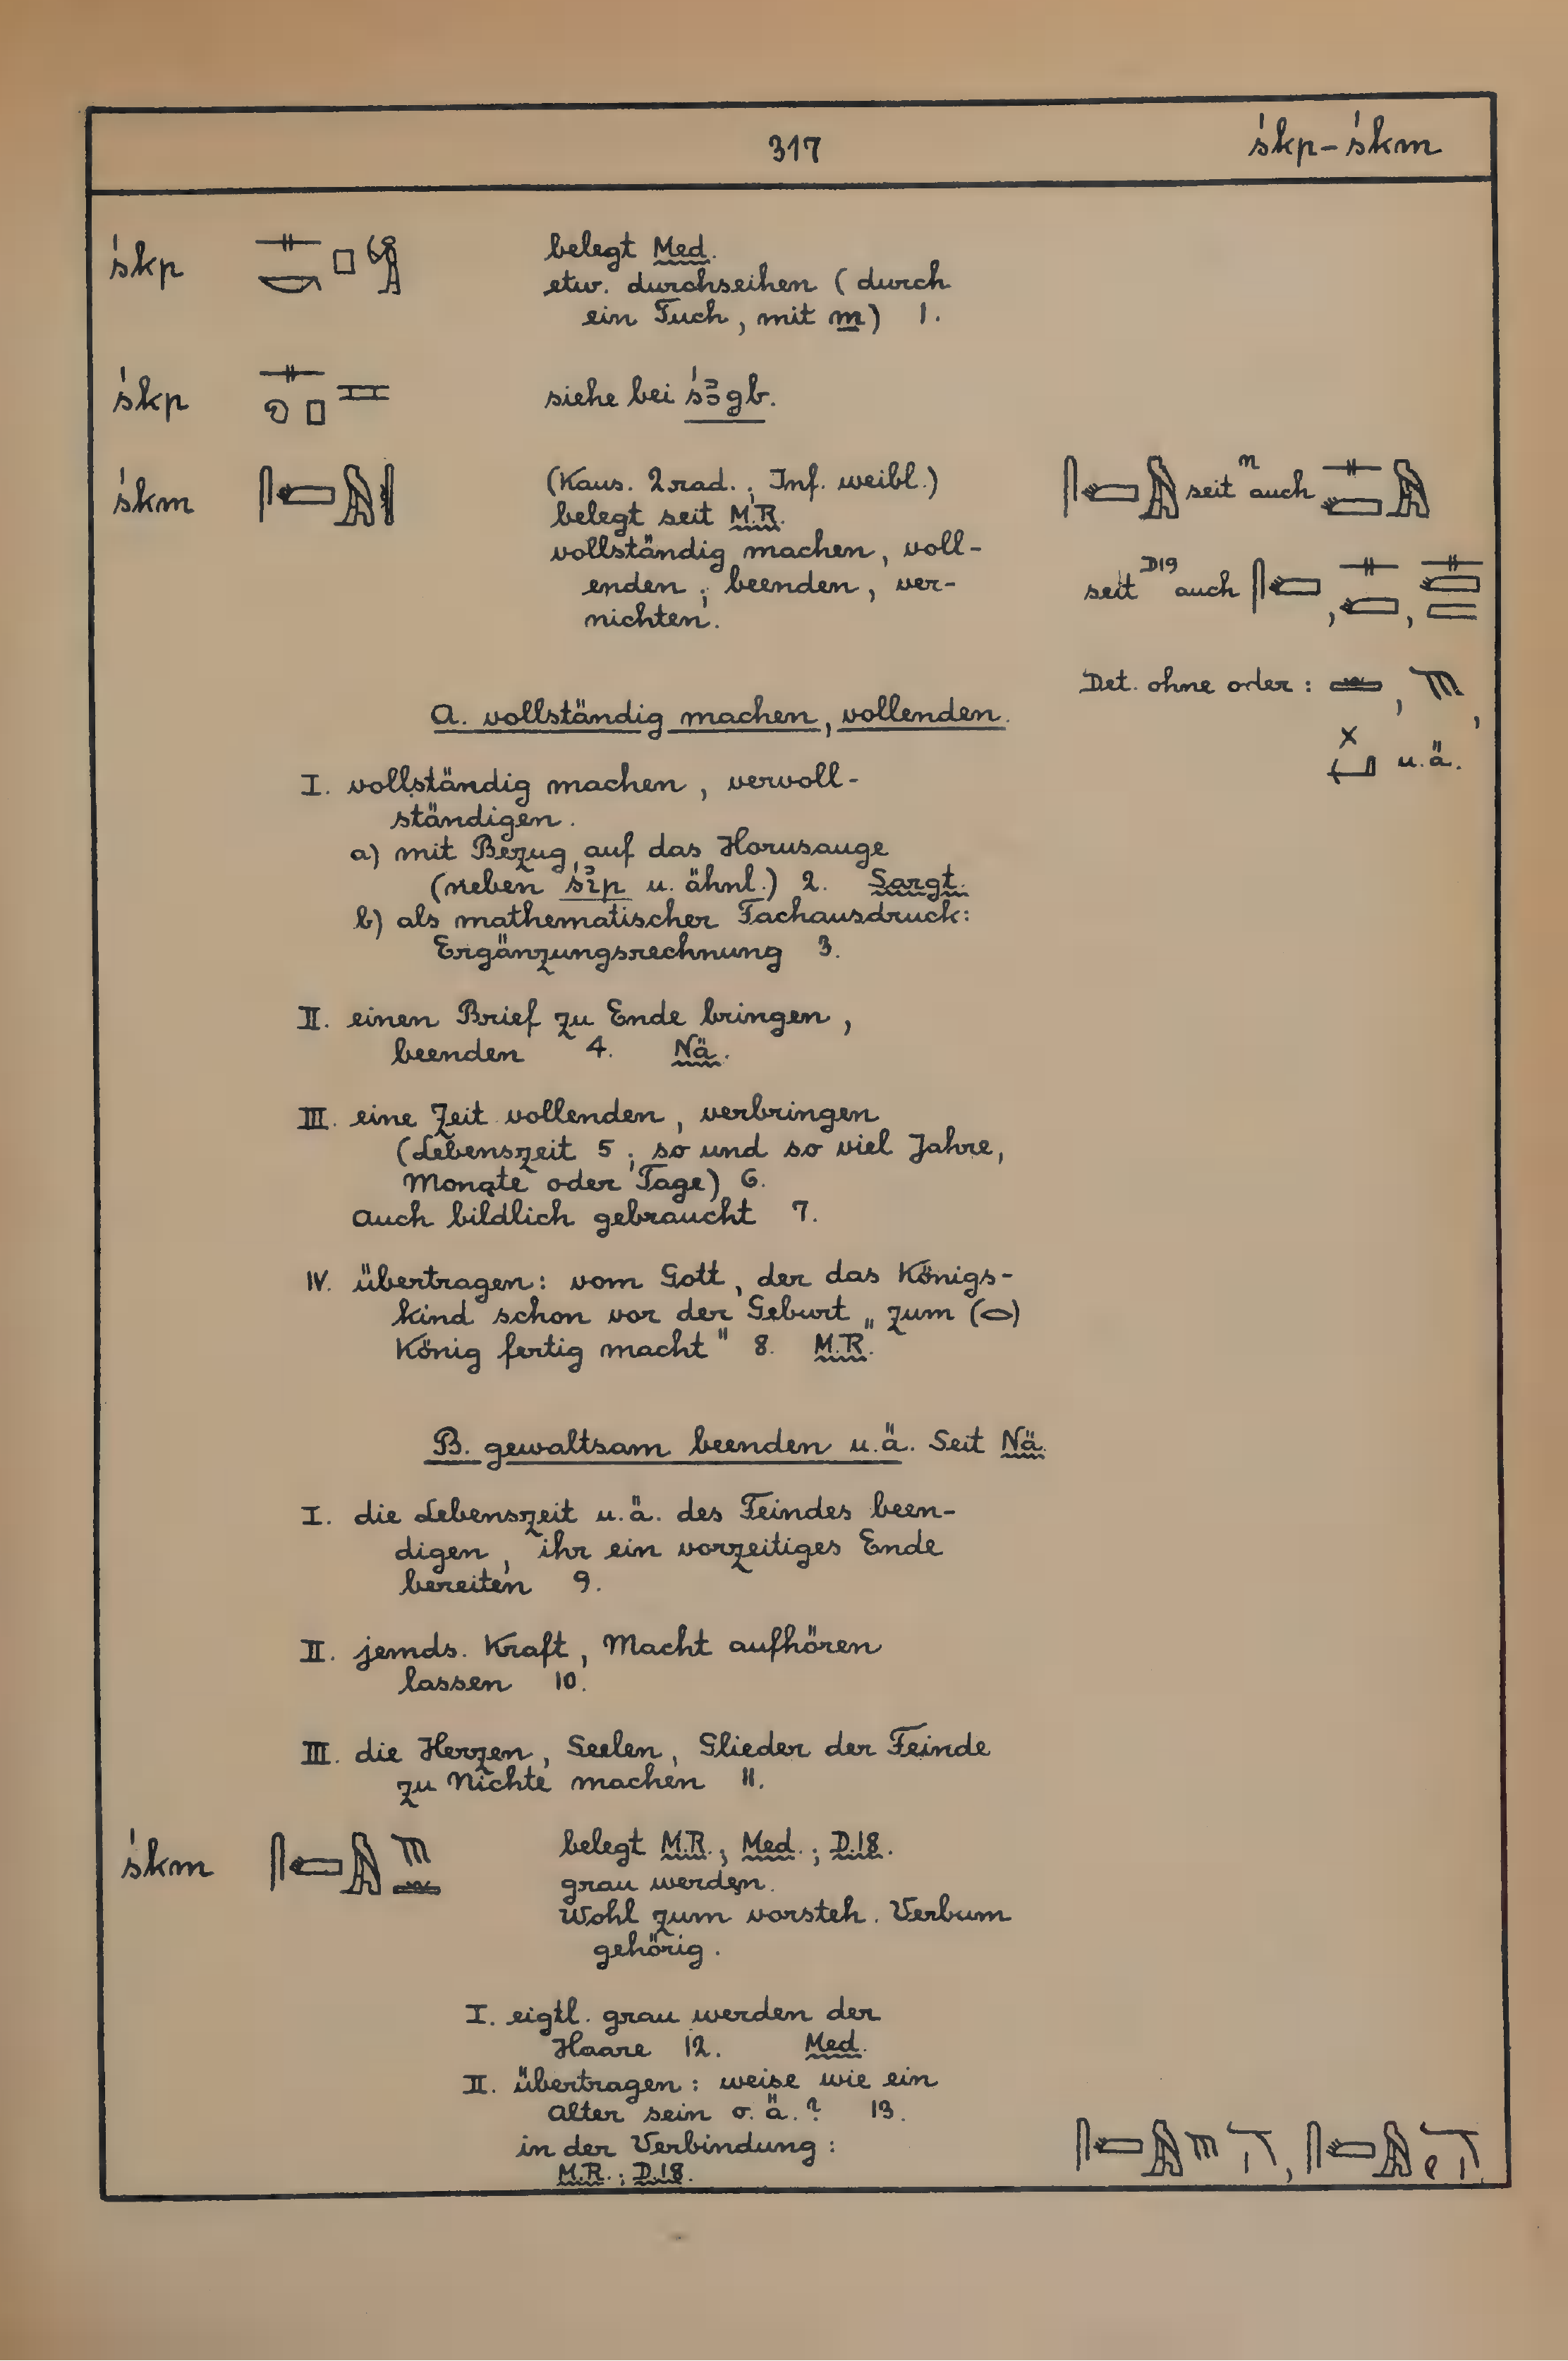 317
śkp – śkm
śkp
belegt Med.
etw. durchseihen ( durch
ein Tuch, mit m) 1.
śkp
siehe bei śꜣgb.
śkm
(Kaus. 2rad.; Inf. weibl.)
belegt seit M.R.
vollständig machen, voll-
enden; beenden, ver-
nichten.
seit n auch
seit D19 auch , ,
Det. ohne oder : , ,
u.ä.
A. vollständig machen, vollenden.
I. vollständig machen, vervoll-
ständigen.
a) mit Bezug auf das Horusauge
(neben śꞽp u. ähnl.) 2. Sargt.
b) als mathematischer Fachausdruck:
Ergänzungsrechnung 3.
II. einen Brief zu Ende bringen,
beenden 4. Nä.
III. eine Zeit vollenden, verbringen
(Lebenszeit 5; so und so viel Jahre,
Monate oder Tage) 6.
Auch bildlich gebraucht 7.
IV. übertragen: vom Gott, der das Königs-
kind schon vor der Geburt „zum (𓂋)
König fertig macht" 8. M.R.
B. gewaltsam beenden u.ä. Seit Nä.
I. die Lebenszeit u.ä. des Feindes been-
digen, ihr ein vorzeitiges Ende
bereiten 9.
II. jemds. Kraft, Macht aufhören
lassen 10.
III. die Herzen, Seelen, Glieder der Feinde
zu Nichte machen 11.
śkm
belegt M.R.; Med.; D.18.
grau werden.
Wohl zum vorsteh. Verbum
gehörig.
I. eigtl. grau werden der
Haare 12. Med.
II. übertragen: weise wie ein
Alter sein o.ä.? 13.
in der Verbindung:
M.R.; D.18.